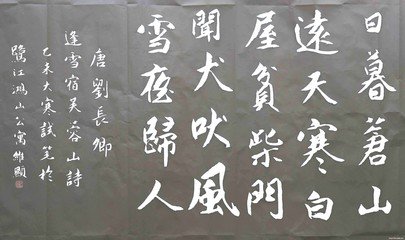 日暮蒼山
遠天寒白
屋貧柴門
聞犬吠風
雪夜歸人
唐劉長卿
逢雪宿芙蓉山詩
乙未大寒試筆於
鷺江鴻山公寓維顯